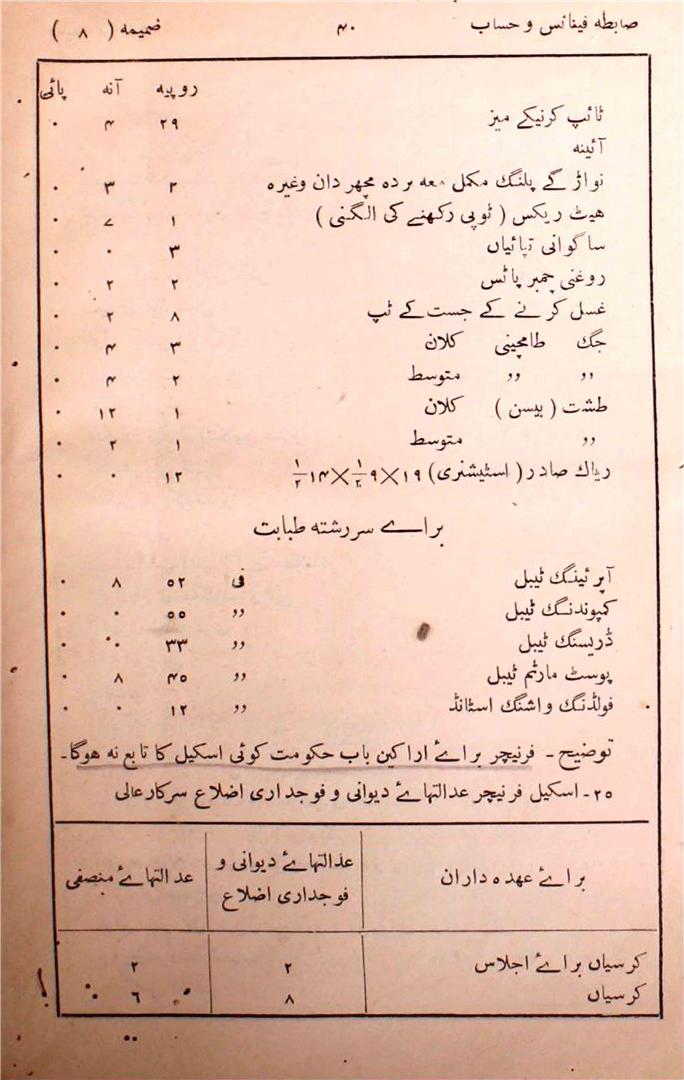 ضابطه فینانس و حساب ۴۰ ضمیمه ( ۸ )
روپیه آنه پائی
ٹائپ کرنیکے میز ۲۹ ۴ ۰
آئینه
نواڑ کے پلنگ مکمل معه پرده مچھر دان وغیره ۲ ۳ ۰
هیٹ ریکس ( ٹوپی رکھنے کی الگنی ) ۱ ۷ ۰
ساگوانی تپائیاں ۳ ۰ ۰
روغنی چمبر پاٹس ۲ ۲ ۰
غسل کرنے کے جست کے ٹپ ۸ ۲ ۰
جگ طامچینی کلان ۳ ۴ ۰
,, ,, متوسط ۲ ۴ ۰
طشت ( بیسن ) کلان ۱ ۱۲ ۰
,, متوسط ۱ ۲ ۰
ریاك صادر ( اسٹیشنری ) ۱۹ × ۹ ۱/۲ × ۱۴ ۱/۲ ۱۲ ۰ ۰
براے سررشته طبابت
آپرئینگ ٹیبل فی ۵۲ ۸ ۰
کمپونڈنگ ٹیبل ,, ۵۵ ۰ ۰
ڈریسنگ ٹیبل ,, ۳۳ ۰ ۰
پوسٹ مارٹم ٹیبل ,, ۴۵ ۸ ۰
فولڈنگ واشنگ اسٹانڈ ,, ۱۲ ۰ ۰
توضیح - فرنیچر براۓ اراکین باب حکومت کوئی اسکیل کا تابع نه هوگا -
۲۵ - اسکیل فرنیچر عدالتهاۓ دیوانی و فوجداری اضلاع سرکارعالی
براۓ عهده داران
عدالتهاۓ دیوانی و
فوجداری اضلاع
عدالتهاۓ منصفی
کرسیاں براۓ اجلاس ۲ ۲
کرسیاں ۸ ۶